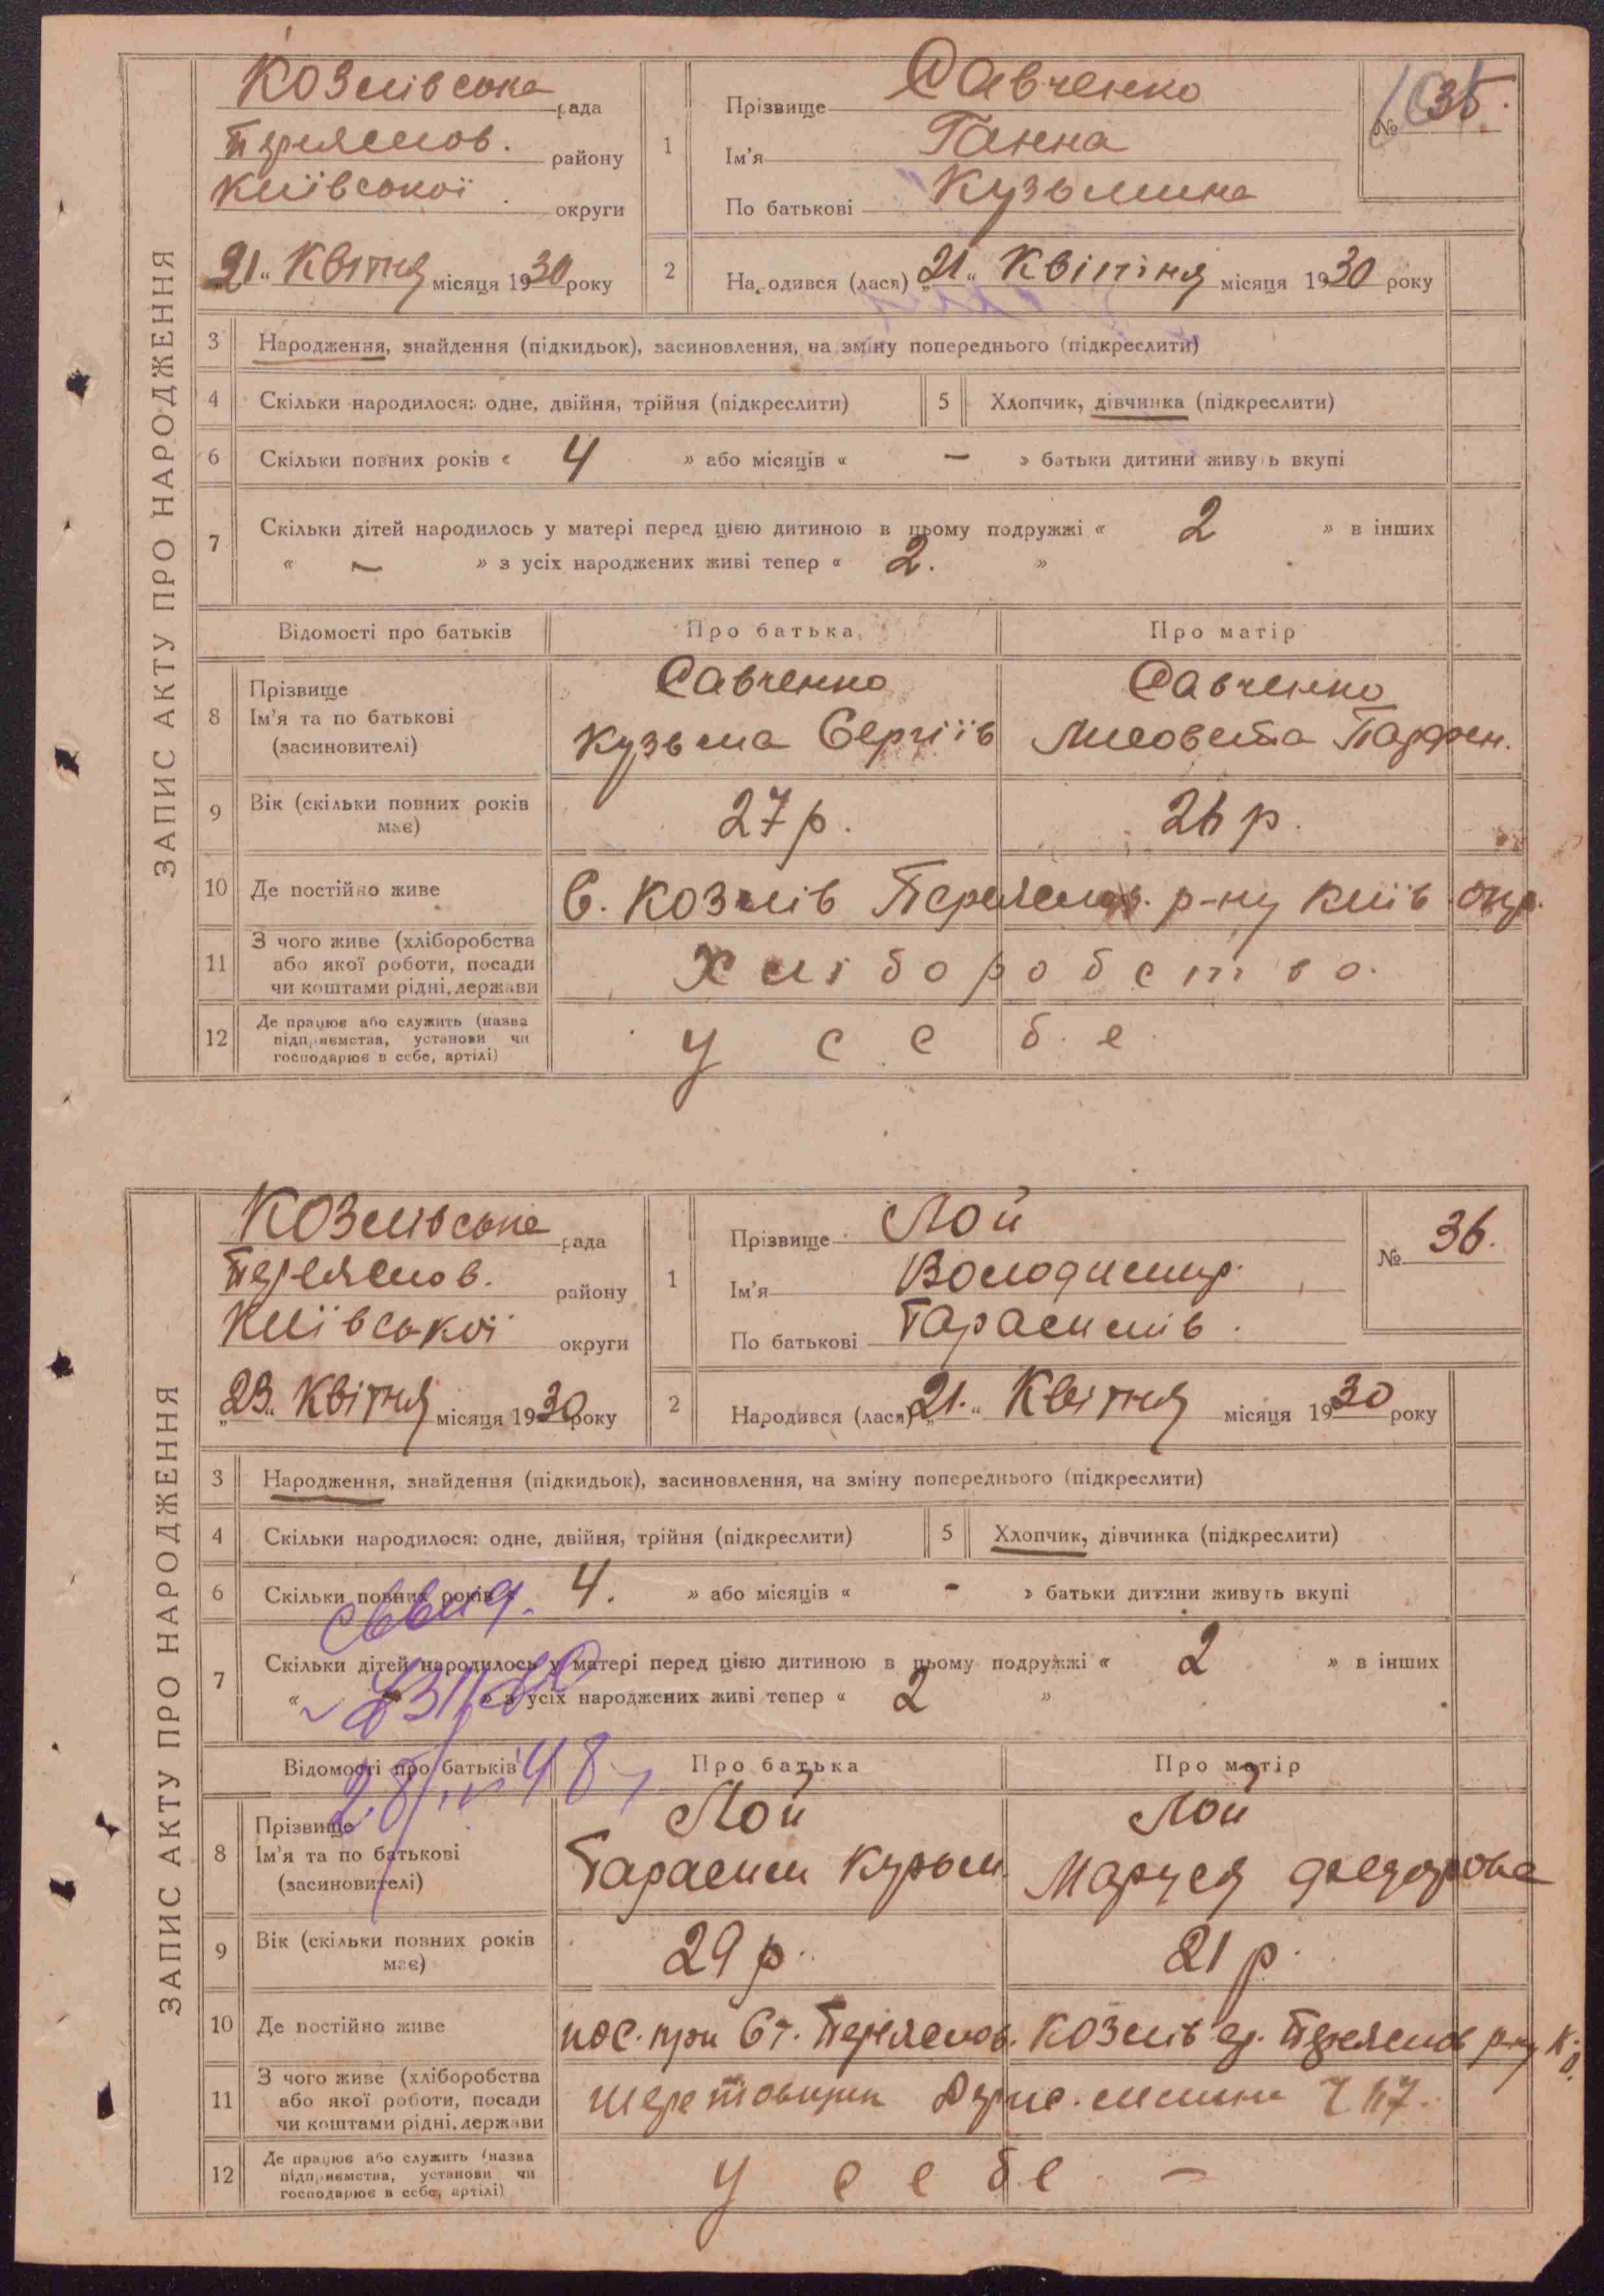 ЗАПИС АКТУ ПРО НАРОДЖЕННЯ
Козлівська рада
Переяслов. району
Київської округи
"21" Квітня місяця 1930 року
1
Прізвище Савченко
Ім'я Ганна
По батькові Кузьмина
№ 35.
2
Народився (лася) "21" Квітіня місяця 1930 року
3 Народження, знайдення (підкидьок), засиновлення, на зміну попереднього (підкреслити)
4 Скільки народилося: одне, двійня, трійня (підкреслити) 5 Хлопчик, дівчинка (підкреслити)
6 Скільки повних років « 4 » або місяців « – » батьки дитини живуть вкупі
7 Скільки дітей народилось у матері перед цією дитиною в цьому подружжі « 2 » в інших
« – » з усіх народжених живі тепер « 2. »
Відомості про батьків Про батька Про матір
8 Прізвище
Ім'я та по батькові
(засиновителі)
Савченко
Кузьма Сергіїв
Савченко
Лисовета Парфен.
9 Вік (скільки повних років має) 27 р. 26 р.
10 Де постійно живе С. Козлів Переяслов. р-ну Київ. окр.
11 З чого живе (хліборобства
або якої роботи, посади
чи коштами рідні, держави
Хліборобство.
12 Де працює або служить (назва
підприємства, установи чи
господарює в себе, артілі)
у себе
ЗАПИС АКТУ ПРО НАРОДЖЕННЯ
Козлівська рада
Переяслов. району
Київської округи
"23" Квітня місяця 1930 року
1
Прізвище Лой
Ім'я Володимир.
По батькові Гарасимів.
№ 36.
2
Народився (лася) "21." Квітня місяця 1930 року
3 Народження, знайдення (підкидьок), засиновлення, на зміну попереднього (підкреслити)
4 Скільки народилося: одне, двійня, трійня (підкреслити) 5 Хлопчик, дівчинка (підкреслити)
6 Скільки повних років « 4. » або місяців « – » батьки дитини живуть вкупі
7 Скільки дітей народилось у матері перед цією дитиною в цьому подружжі « 2 » в інших
« » з усіх народжених живі тепер « 2 »
28/IV 48
Відомості про батьків Про батька Про матір
8 Прізвище
Ім'я та по батькові
(засиновителі)
Лой
Гарасим
Лой
Маруся Федорова
9 Вік (скільки повних років має) 29 р. 21 р.
10 Де постійно живе пос. при Ст. Переяслов. Переяслов р-ну
11 З чого живе (хліборобства
або якої роботи, посади
чи коштами рідні, держави
12 Де працює або служить (назва
підприємства, установи чи
господарює в себе, артілі)
у себе –